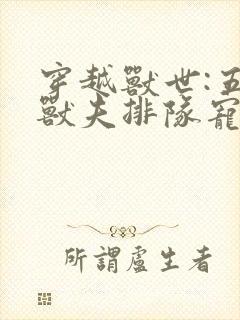 穿越獸世:五
獸夫排隊寵
所謂盧生者